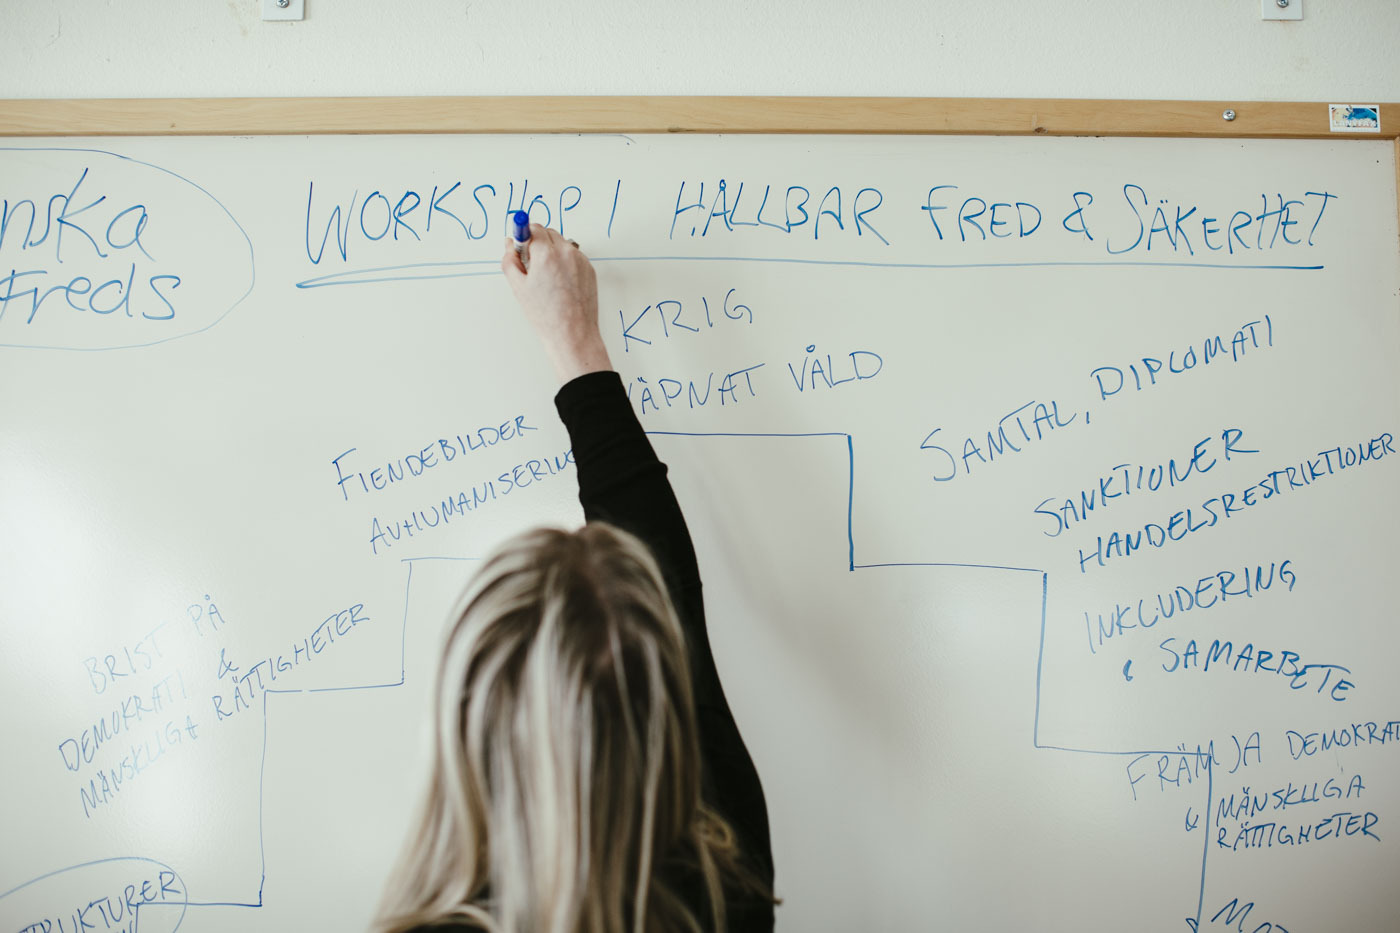 nska
Freds
WORKSHOP I HÅLLBAR FRED & SÄKERHET
KRIG
VÄPNAT VÅLD
FIENDEBILDER
AVHUMANISERING
BRIST PÅ
DEMOKRATI &
MÄNSKLIGA RÄTTIGHETER
STRUKTURER
SAMTAL, DIPLOMATI
SANKTIONER
HANDELSRESTRIKTIONER
INKLUDERING
& SAMARBETE
FRÄMJA DEMOKRAT
& MÄNSKLIGA
RÄTTIGHETER